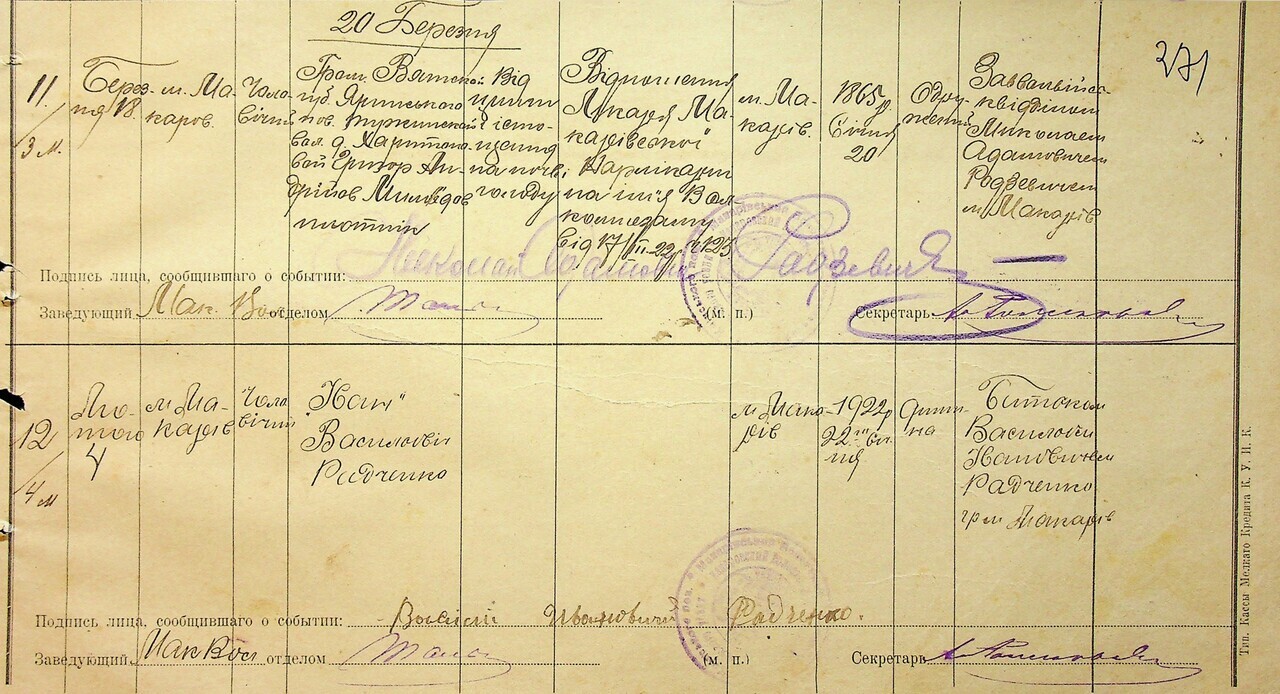 20 Березня
271
11.
3 м.
Берез-
ня 18.
м. Ма-
каров.
Чоло-
вічий
Гром. Вятской
губ. Яринського
пов.
вол. д.
вой Григор Ан-
дріїв
плотнік
Від
цинги
і істо-
щения
на почві
голоду
Відношення
Лікаря Ма-
карівської
на імʼя Вол
від 17/III-22 р. №123
м. Ма-
карів.
1865 р.
Січня
20
Одру-
жений
Миколаєм
Адамовичем
Родзевичем
м. Макарів
Подпись лица, сообщившаго о событии: Николай Адамович Радзевич
Заведующий Мак. Вол отделом
(м. п.)
Секретарь
12
4 м
Лю-
того
4
м Ма-
карів
Чоло
вічий
Иван
Василовіч
Радченко
м Мака-
рів
1922 р
22 го Січ
ня
Дити-
на
Батоком
Василом
Ивановичем
Радченко
гр м Макарів
Подпись лица, сообщившаго о событии: Васілій Иванович Радченко.
Заведующий Мак Вол отделом
(м. п.)
Секретарь
Тип. Кассы Мелкаго Кредита К. У. И. К.